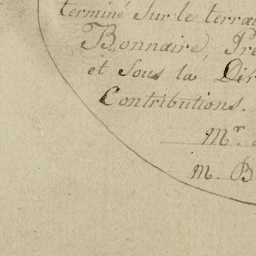 terminé sur le terra
Bonnaire, Pré
et sous la Dir
Contributions.
Mr.
M. B